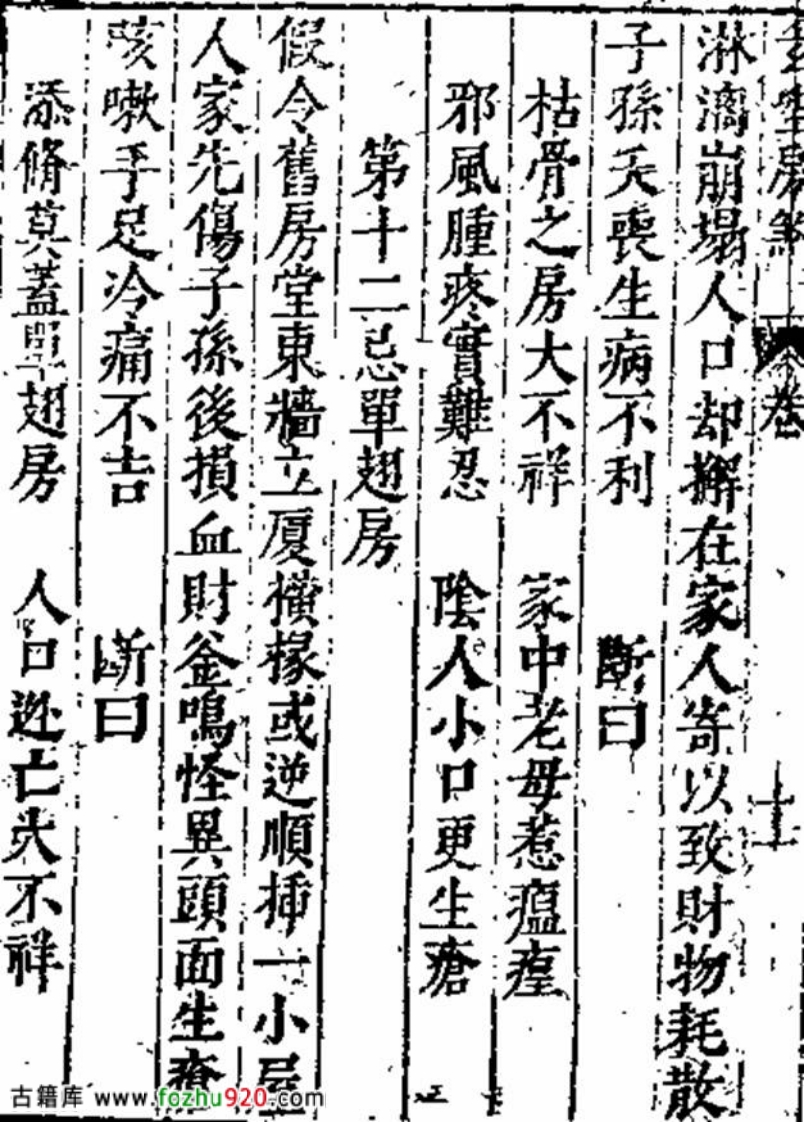 房煞 卷 十
淋漓崩塌人口却搬在家人寄以致財物耗散
子孫夭喪生病不利 斷曰
枯骨之房大不祥 家中老母惹瘟瘟
邪風腫疼實難忍 陰人小口更生瘡
第十二忌單翅房
假令舊房堂東牆立厦橫椽或逆順揷一小屋
人家先傷子孫後損血財釜鳴怪異頭面生瘡
咳嗽手足冷痛不吉 斷曰
添修莫蓋單翅房 人口逃亡大不祥
古籍库 www.fozhu920.com